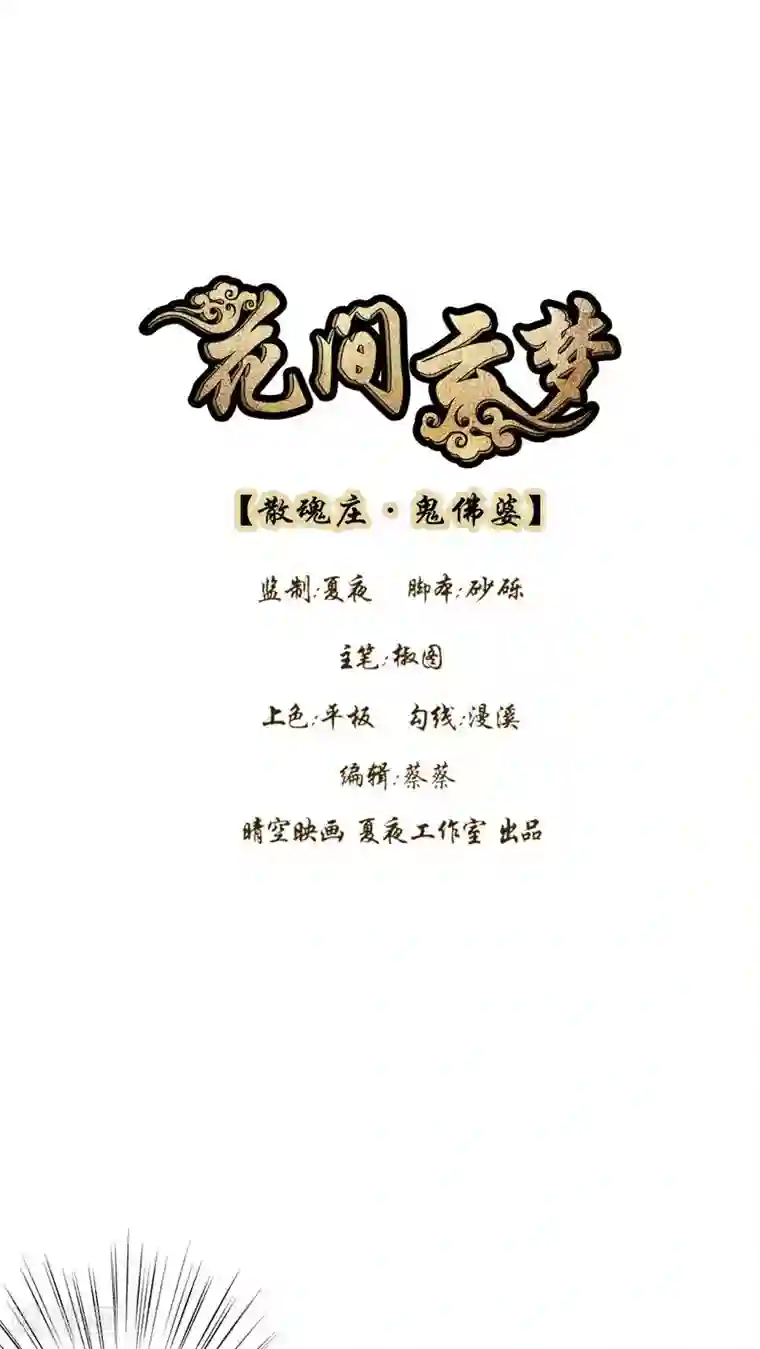 花间玄梦
【散魂庄·鬼佛婆】
监制:夏夜 脚本:砂砾
主笔:椒图
上色:平板 勾线:漫溪
编辑:蔡蔡
晴空映画 夏夜工作室 出品